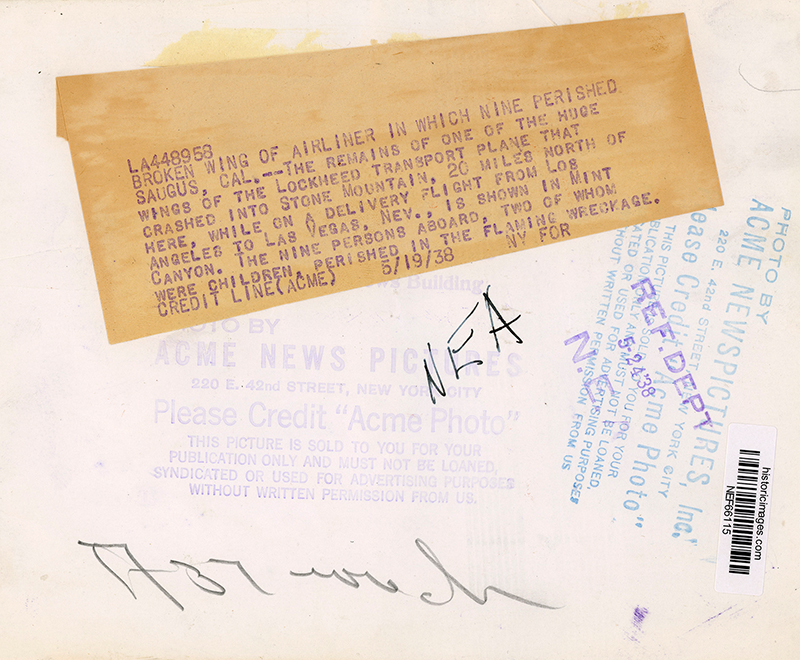 LA448958
BROKEN WING OF AIRLINER IN WHICH NINE PERISHED
SAUGUS, CAL.--THE REMAINS OF ONE OF THE HUGE
WINGS OF THE LOCKHEED TRANSPORT PLANE THAT
CRASHED INTO STONE MOUNTAIN, 20 MILES NORTH OF
HERE, WHILE ON A DELIVERY FLIGHT FROM LOS
ANGELES TO LAS VEGAS, NEV., IS SHOWN IN MINT
CANYON. THE NINE PERSONS ABOARD, TWO OF WHOM
WERE CHILDREN, PERISHED IN THE FLAMING WRECKAGE.
CREDIT LINE(ACME) 5/19/38 NY FOR
Building
PHOTO BY
ACME NEWS PICTURES
220 E. 42nd STREET, NEW YORK CITY
Please Credit "Acme Photo"
THIS PICTURE IS SOLD TO YOU FOR YOUR
PUBLICATION ONLY AND MUST NOT BE LOANED,
SYNDICATED OR USED FOR ADVERTISING PURPOSES
WITHOUT WRITTEN PERMISSION FROM US.
NEA
PHOTO BY
ACME NEWSPICTURES, Inc.
220 E. 42nd STREET, NEW YORK CITY
Please Credit "Acme Photo"
THIS PICTURE IS SOLD TO YOU FOR YOUR
PUBLICATION ONLY AND MUST NOT BE LOANED,
SYNDICATED OR USED FOR ADVERTISING PURPOSES
WITHOUT WRITTEN PERMISSION FROM US
REF. DEPT
5-24-38
N.E.
historicimages.com
NEF66115